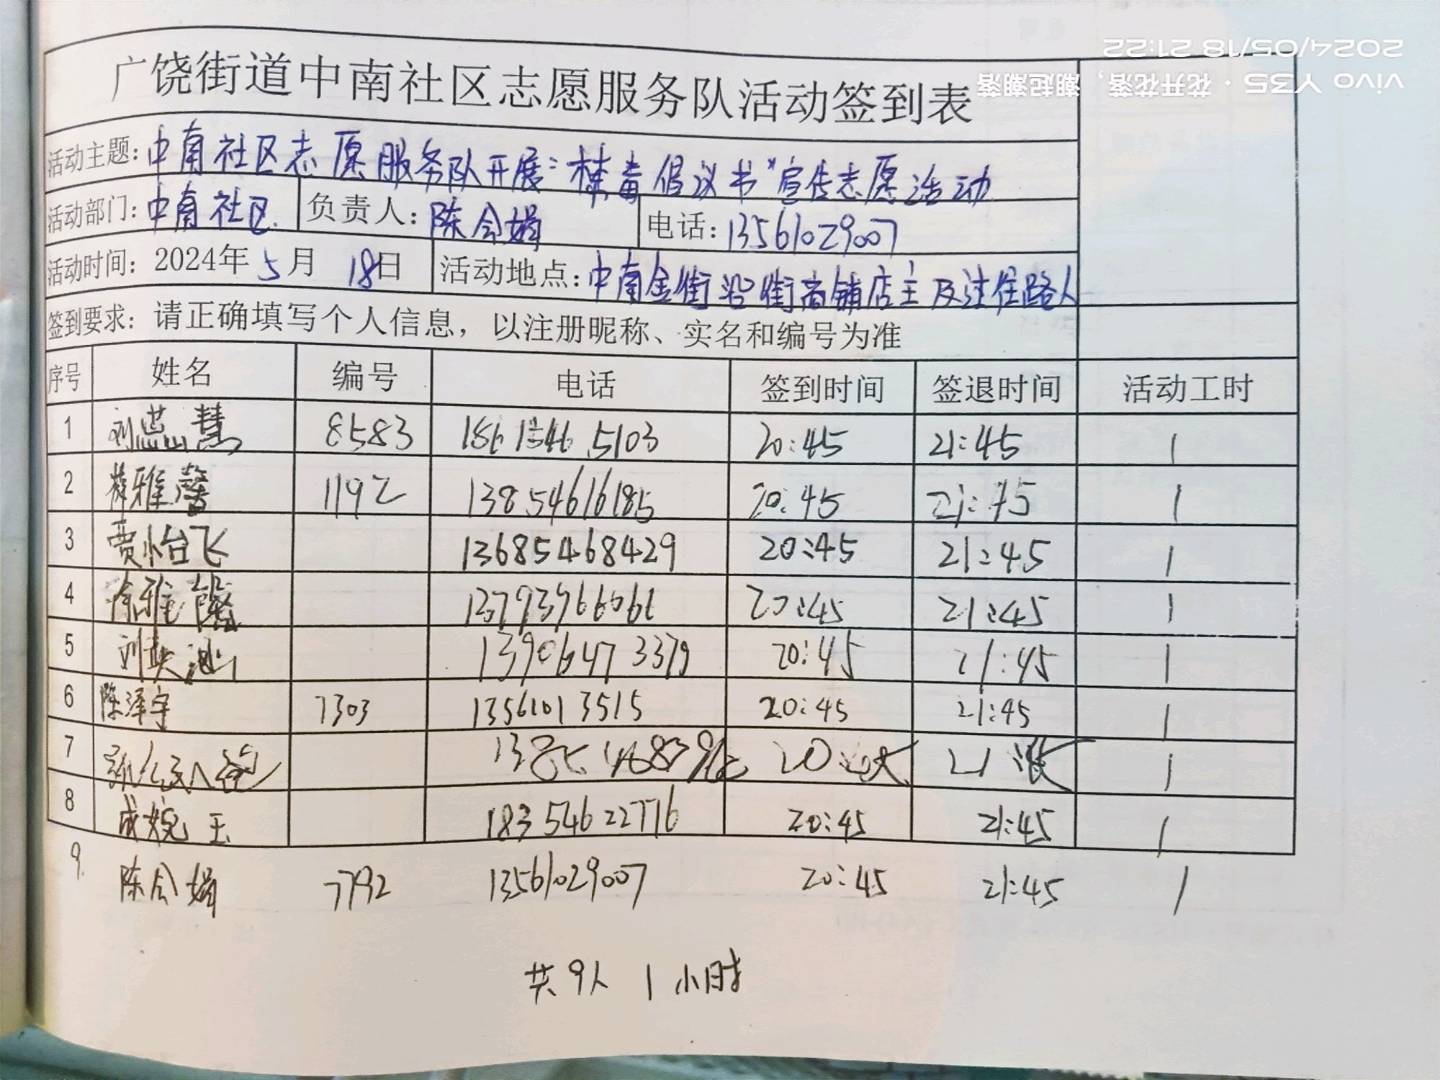 2024/05/18 21:22
vivo Y35 · 花开花落，潮起潮落
广饶街道中南社区志愿服务队活动签到表
活动主题：中南社区志愿服务队开展"禁毒倡议书"宣传志愿活动
活动部门：中南社区 负责人：陈会娟 电话：13561029007
活动时间：2024年5月18日 活动地点：中南金街沿街商铺店主及过往路人
签到要求：请正确填写个人信息，以注册昵称、实名和编号为准
序号 姓名 编号 电话 签到时间 签退时间 活动工时
1 刘慧 8583 186 1546 5103 20:45 21:45 1
2 雅馨 1192 13854616185 20:45 21:45 1
3 贾怡飞 13685468429 20:45 21:45 1
4 徐雅 13793966061 20:45 21:45 1
5 刘 13906473379 20:45 21:45 1
6 陈泽宇 7303 13561013515 20:45 21:45 1
7 20:45 21:45 1
8 成婉玉 18354622776 20:45 21:45 1
9. 陈会娟 7792 13561029007 20:45 21:45 1
共9人 1小时